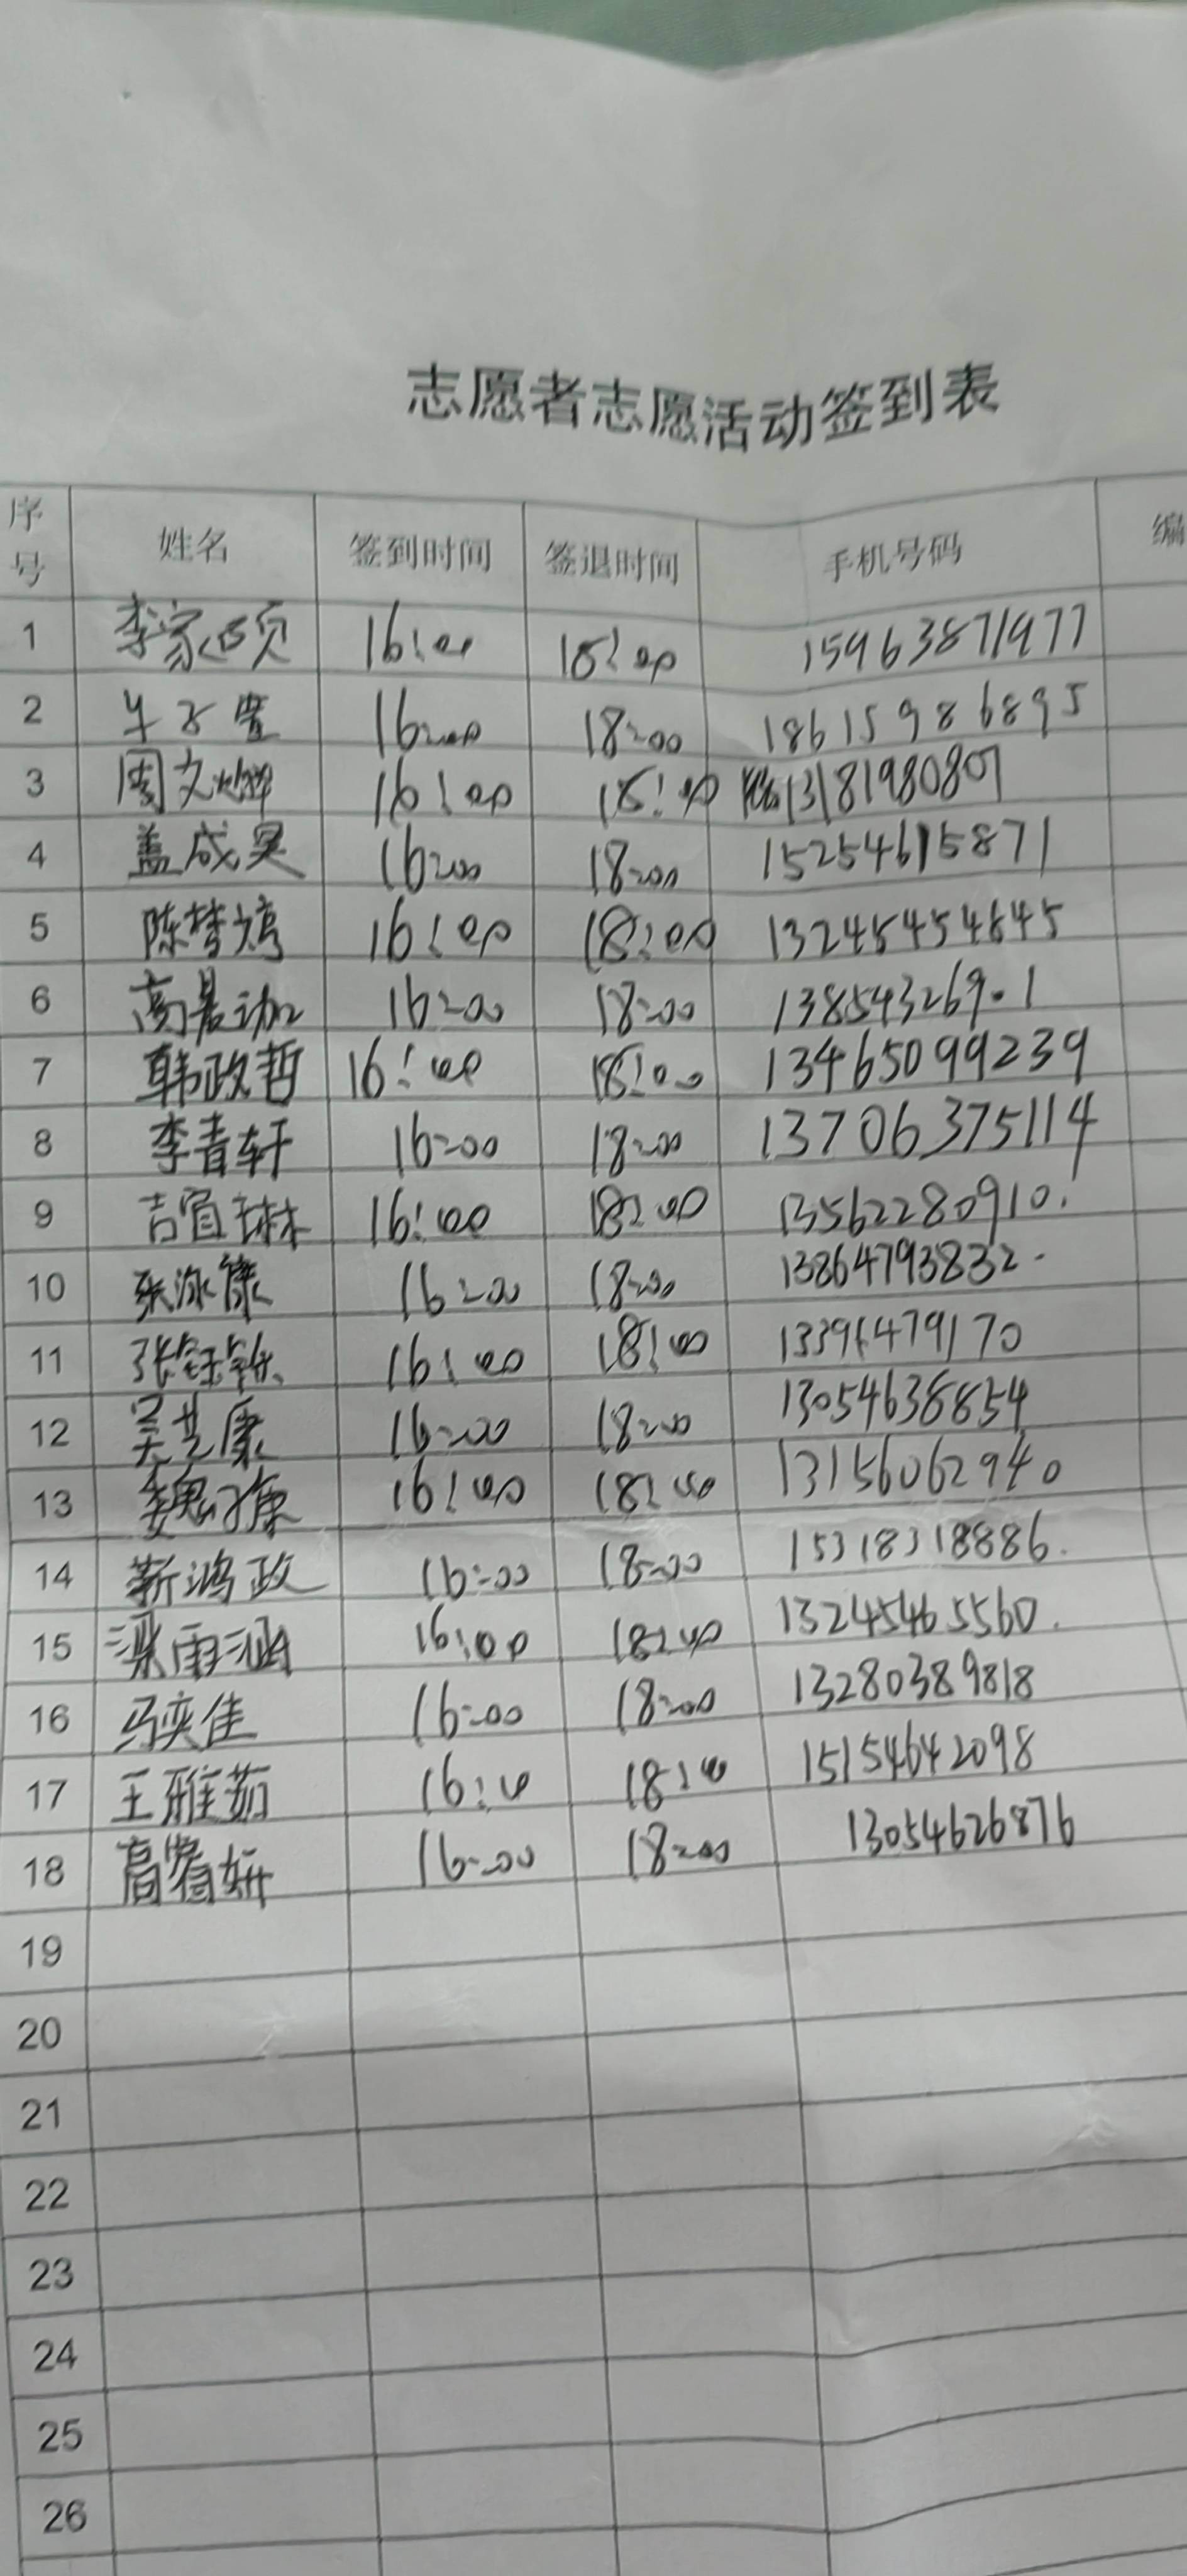 志愿者志愿活动签到表
序号 姓名 签到时间 签退时间 手机号码 编
1 李家硕 16:00 18:00 15963871977
2 16:00 18:00 18615986895
3 周文烨 16:00 18:00 13181980807
4 盖成昊 16:00 18:00 15254615871
5 陈梦婷 16:00 18:00
6 16:00 18:00
7 韩政哲 16:00 18:00 13465099239
8 李青轩 16:00 18:00 13706375114
9 吉宜琳 16:00 18:00 13562280910
10 16:00 18:00 13864793832
11 16:00 18:00
12 吴艺康 16:00 18:00 13054638854
13 魏子康 16:00 18:00 13156062940
14 靳鸿政 16:00 18:00 15318318886
15 梁雨涵 16:00 18:00 13245465560
16 马奕佳 16:00 18:00 13280389818
17 王雅茹 16:00 18:00 15154642098
18 16:00 18:00 13054626876
19
20
21
22
23
24
25
26